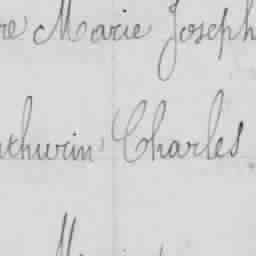 re Marie Joseph
athurin Charles